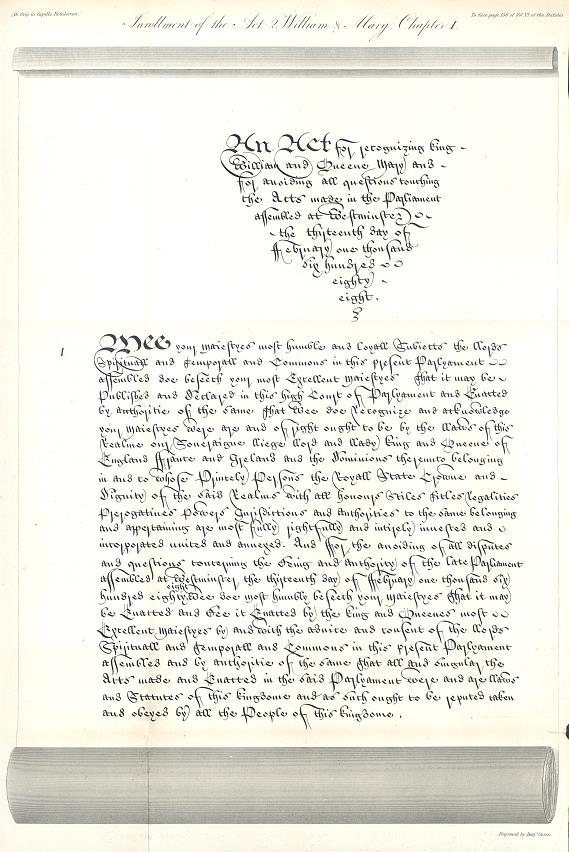 An Orig in Capella Rotulorum.
Inrollment of the Act 2 William & Mary, Chapter I.
To face page 156 of Vol. VI of the Statutes
An Act for recognizing king
William and Queene Mary and
for avoiding all questions touching
the Acts made in the Parliament
assembled at Westminster
the thirteenth day of
ffebruary one thousand
six hundred
eighty
eight.
1
Wee your Maiestyes most humble and loyall Subiects the Lords
Spirituall and Temporall and Commons in this present Parlyament
assembled doe beseech your most Excellent Maiestyes That it may be
Published and Declared in this high Court of Parlyament and Enacted
by authoritie of the same That Wee doe Recognize and acknowledge
your Maiestyes were are and of right ought to be by the Laws of this
Realme our Soveraigne Liege Lord and Lady King and Queene of
England ffrance and Ireland and the Dominions thereunto belonging
in and to whose Princely Persons the Royall State Crowne and
Dignity of the said Realms with all honours Stiles Titles Regalities
Prerogatives Powers Jurisdictions and authorities to the same belonging
and appertaining are most fully rightfully and intirely invested and
incorporated united and annexed. And ffor the avoiding of all disputes
and questions concerning the Being and authority of the late Parliament
assembled at Westminster the thirteenth day of ffebruary one thousand six
hundred eighty eight Wee doe most humbly beseech your Maiestyes That it may
be Enacted and Bee it Enacted by the King and Queenes most
Excellent Maiestyes by and with the advice and consent of the Lords
Spirituall and Temporall and Commons in this present Parlyament
assembled and by authoritie of the same That all and singular the
Acts made and Enacted in the said Parlyament were and are Laws
and Statutes of this kingdome and as such ought to be reputed taken
and obeyed by all the People of this kingdome.
Engraved by